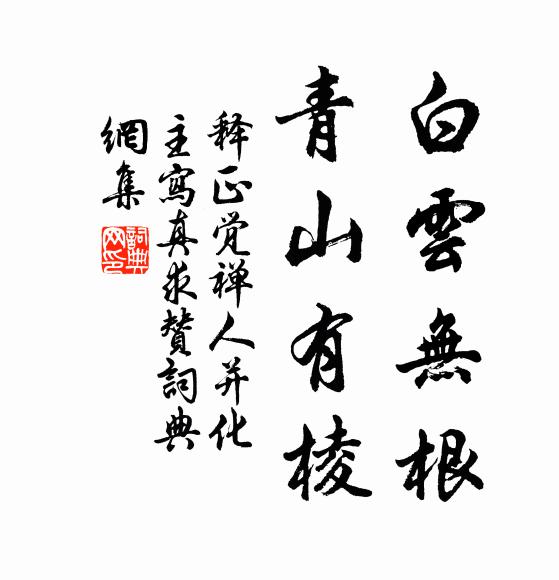 白雲無根
青山有棱
释正觉禅人并化
主寫真求贊詞典
網集
詞典
网印